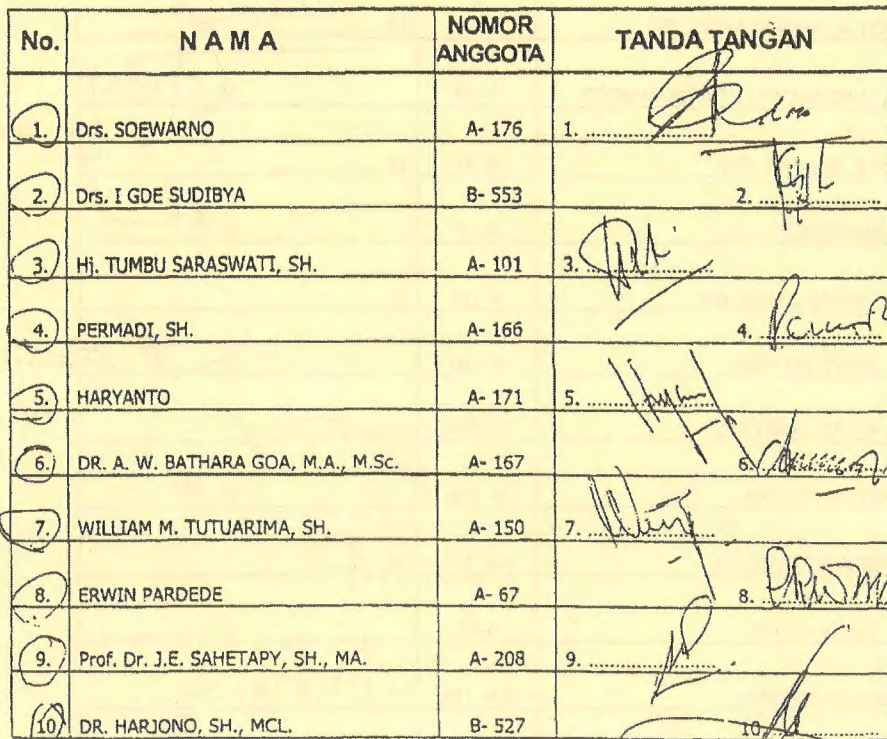 No. N A M A NOMOR ANGGOTA TANDA TANGAN
1. Drs. SOEWARNO A- 176 1.
2. Drs. I GDE SUDIBYA B- 553 2.
3. Hj. TUMBU SARASWATI, SH. A- 101 3.
4. PERMADI, SH. A- 166 4.
5. HARYANTO A- 171 5.
6. DR. A. W. BATHARA GOA, M.A., M.Sc. A- 167 6.
7. WILLIAM M. TUTUARIMA, SH. A- 150 7.
8. ERWIN PARDEDE A- 67 8.
9. Prof. Dr. J.E. SAHETAPY, SH., MA. A- 208 9.
10. DR. HARJONO, SH., MCL. B- 527 10.